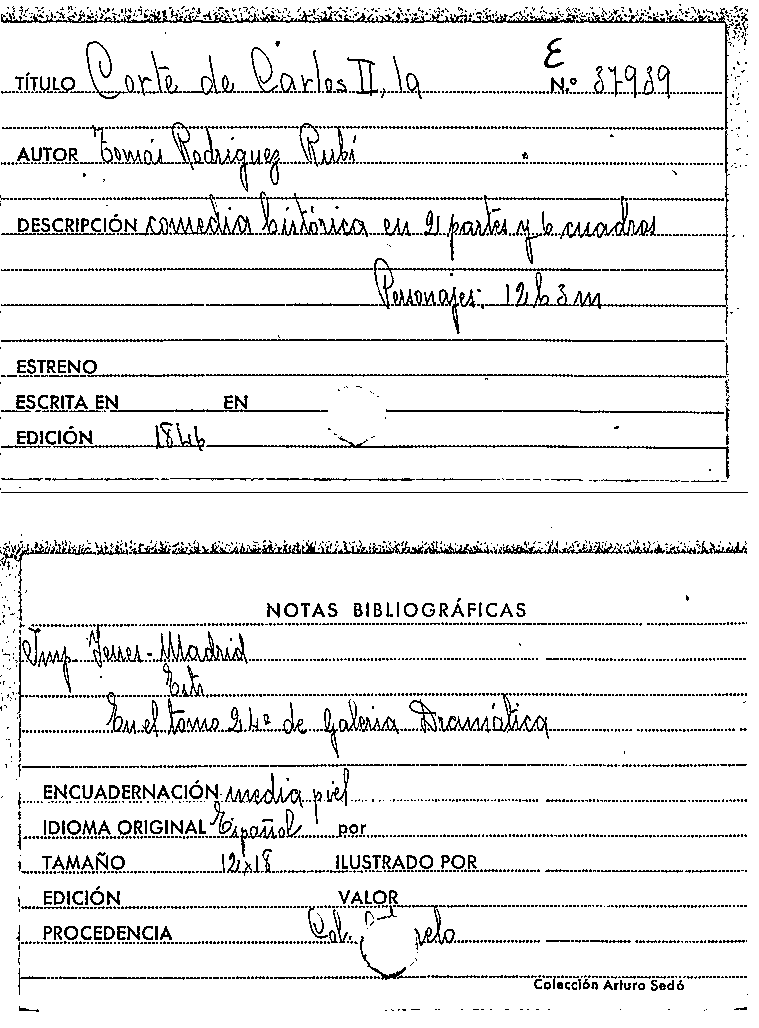 E
TÍTULO Corte de Carlos II, la N.º 37939
AUTOR Tomás Rodriguez Rubí
DESCRIPCIÓN comedia histórica en 2 partes y 6 cuadros
Personajes: 12 h 3 m
ESTRENO
ESCRITA EN EN
EDICIÓN 1846
NOTAS BIBLIOGRÁFICAS
Imp Yenes - Madrid
En el tomo 24º de Galeria Dramática
ENCUADERNACIÓN media piel
IDIOMA ORIGINAL Español por
TAMAÑO 12x18 ILUSTRADO POR
EDICIÓN VALOR
PROCEDENCIA Col.
Colección Arturo Sedó